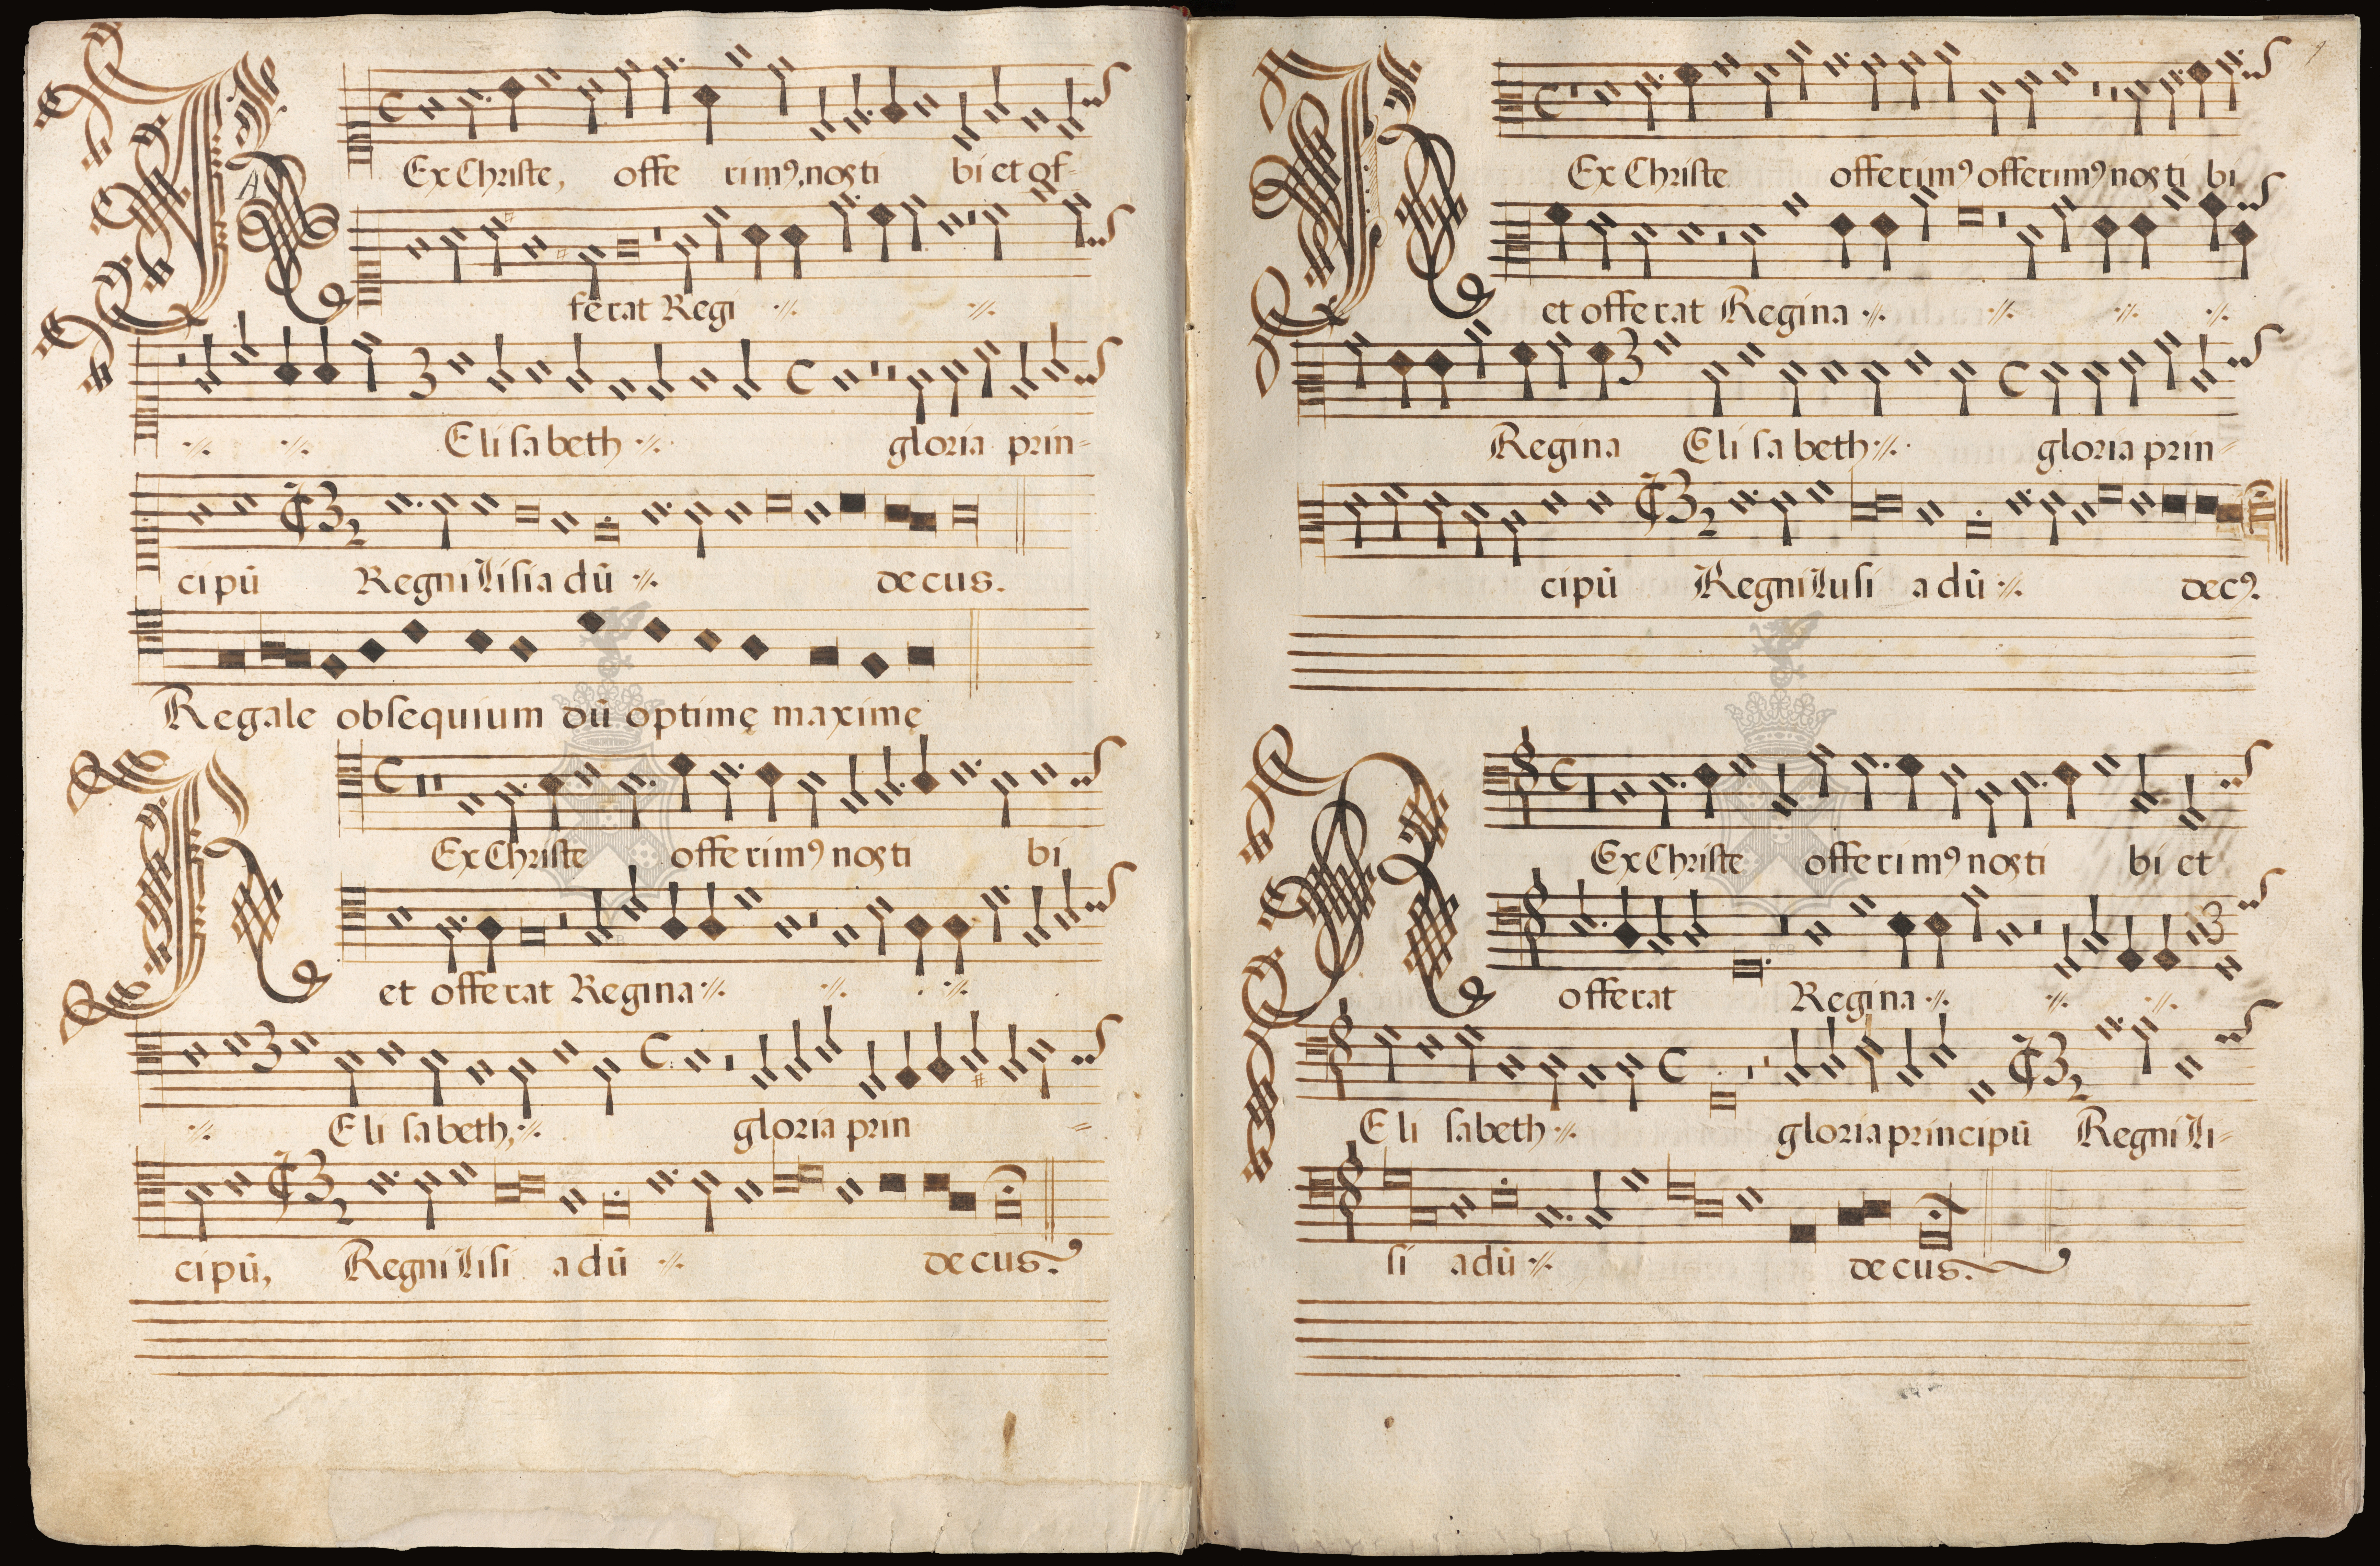 REx Christe, offe rim⁹, nos ti bi et of-
ferat Regi ·//· ·//·
·//· ·//· Eli sa beth ·//· gloria prin=
cipū Regni Lisia dū ·//· decus.
Regale obsequium dū optimę maximę
REx Christe offe rim⁹ nos ti bi
et offerat Regina ·//· ·//· ·//·
·//· Eli sa beth, ·//· gloria prin =
cipū, Regni Lisi a dū ·//· decus.
REx Christe offerim⁹ offerim⁹ nos ti bi
et offerat Regina ·//· ·//· ·//· ·//·
Regina Eli sa beth ·//· gloria prin=
cipū Regni Lusi a dū ·//· dec⁹.
REx Christe offe rim⁹ nos ti bi et
offerat Regina ·//· ·//· ·//·
Eli sabeth ·//· gloria principū Regni Li=
si a dū ·//· decus.